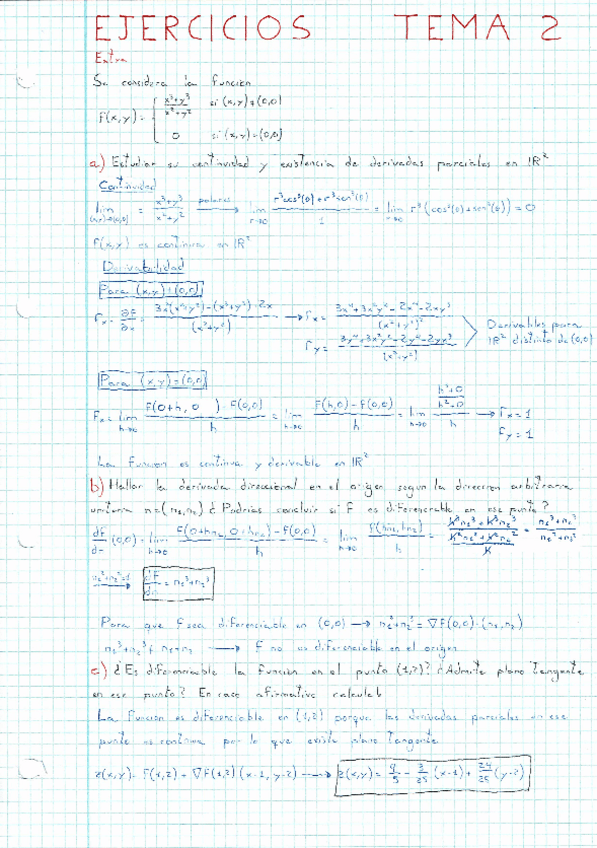 EJERCICIOS TEMA 2
Extra
Se considera la función
f(x,y) = { x³+y³ / x²+y² si (x,y)≠(0,0)
0 si (x,y)=(0,0)
a) Estudiar su continuidad y existencia de derivadas parciales en IR²
Continuidad
lim (x,y)→(0,0) = x³+y³ / x²+y² polares → lim r→0 r³cos³(θ)+r³sen³(θ) / = lim r→0 (cos³(θ)+sen³(θ)) = 0
f(x,y) es continua en IR²
Derivabilidad
Para (x,y)≠(0,0)
Derivables para
IR² distinto de (0,0)
Para (x,y)=(0,0)
fx = lim h→0 f(0+h, 0) - f(0,0) / h = lim h→0 f(h,0) - f(0,0) / h = lim h→0 h³+0 / h²+0 / h → fx = 1
fy = 1
La función es continua y derivable en IR²
b) Hallar la derivada direccional en el origen según la dirección arbitraria
unitaria n=(n₁,n₂) ¿Podrías concluir si f es diferenciable en ese punto?
(0,0) = lim h→0 f(0+hn₁, 0+hn₂) - f(0,0) / h = lim h→0 f(hn₁,hn₂) / h =
= n₁³+n₂³
Para que f sea diferenciable en (0,0) → n₁³+n₂³ = ∇f(0,0)·(n₁,n₂)
n₁³+n₂³ ≠ n₁+n₂ → f no es diferenciable en el origen
c) ¿Es diferenciable la función en el punto (1,2)? ¿Admite plano tangente
en ese punto? En caso afirmativo calcule
La función es diferenciable en (1,2) porque las derivadas parciales en ese
punto es continua por lo que existe plano tangente
z(x,y) = f(1,2) + ∇f(1,2)(x-1, y-2) → z(x,y) = 9/5 - 3/25 (x-1) + 24/25 (y-2)